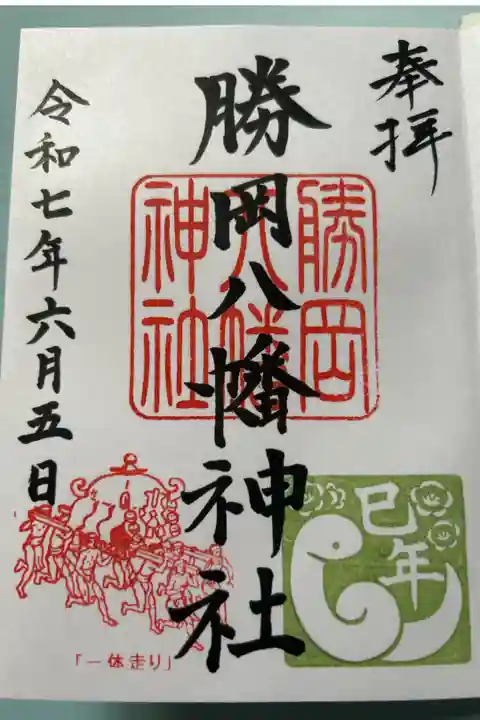 奉拝
勝岡八幡神社
勝岡
八幡
神社
令和七年六月五日
「一体走り」
巳年